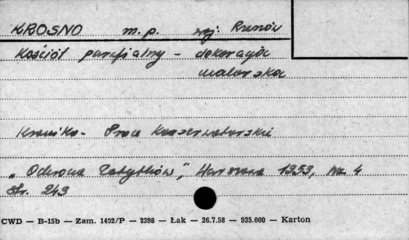 KROSNO m.p. woj. Rzeszów
Kościół parafialny - dekoracja
malarska
Kronika - Prace konserwatorskie
"Ochrona Zabytków", Warszawa 1953, Nr. 4
str. 243
CWD — B-15b — Zam. 1492/P — 2398 — Łak — 26.7.58 — 935.000 — Karton